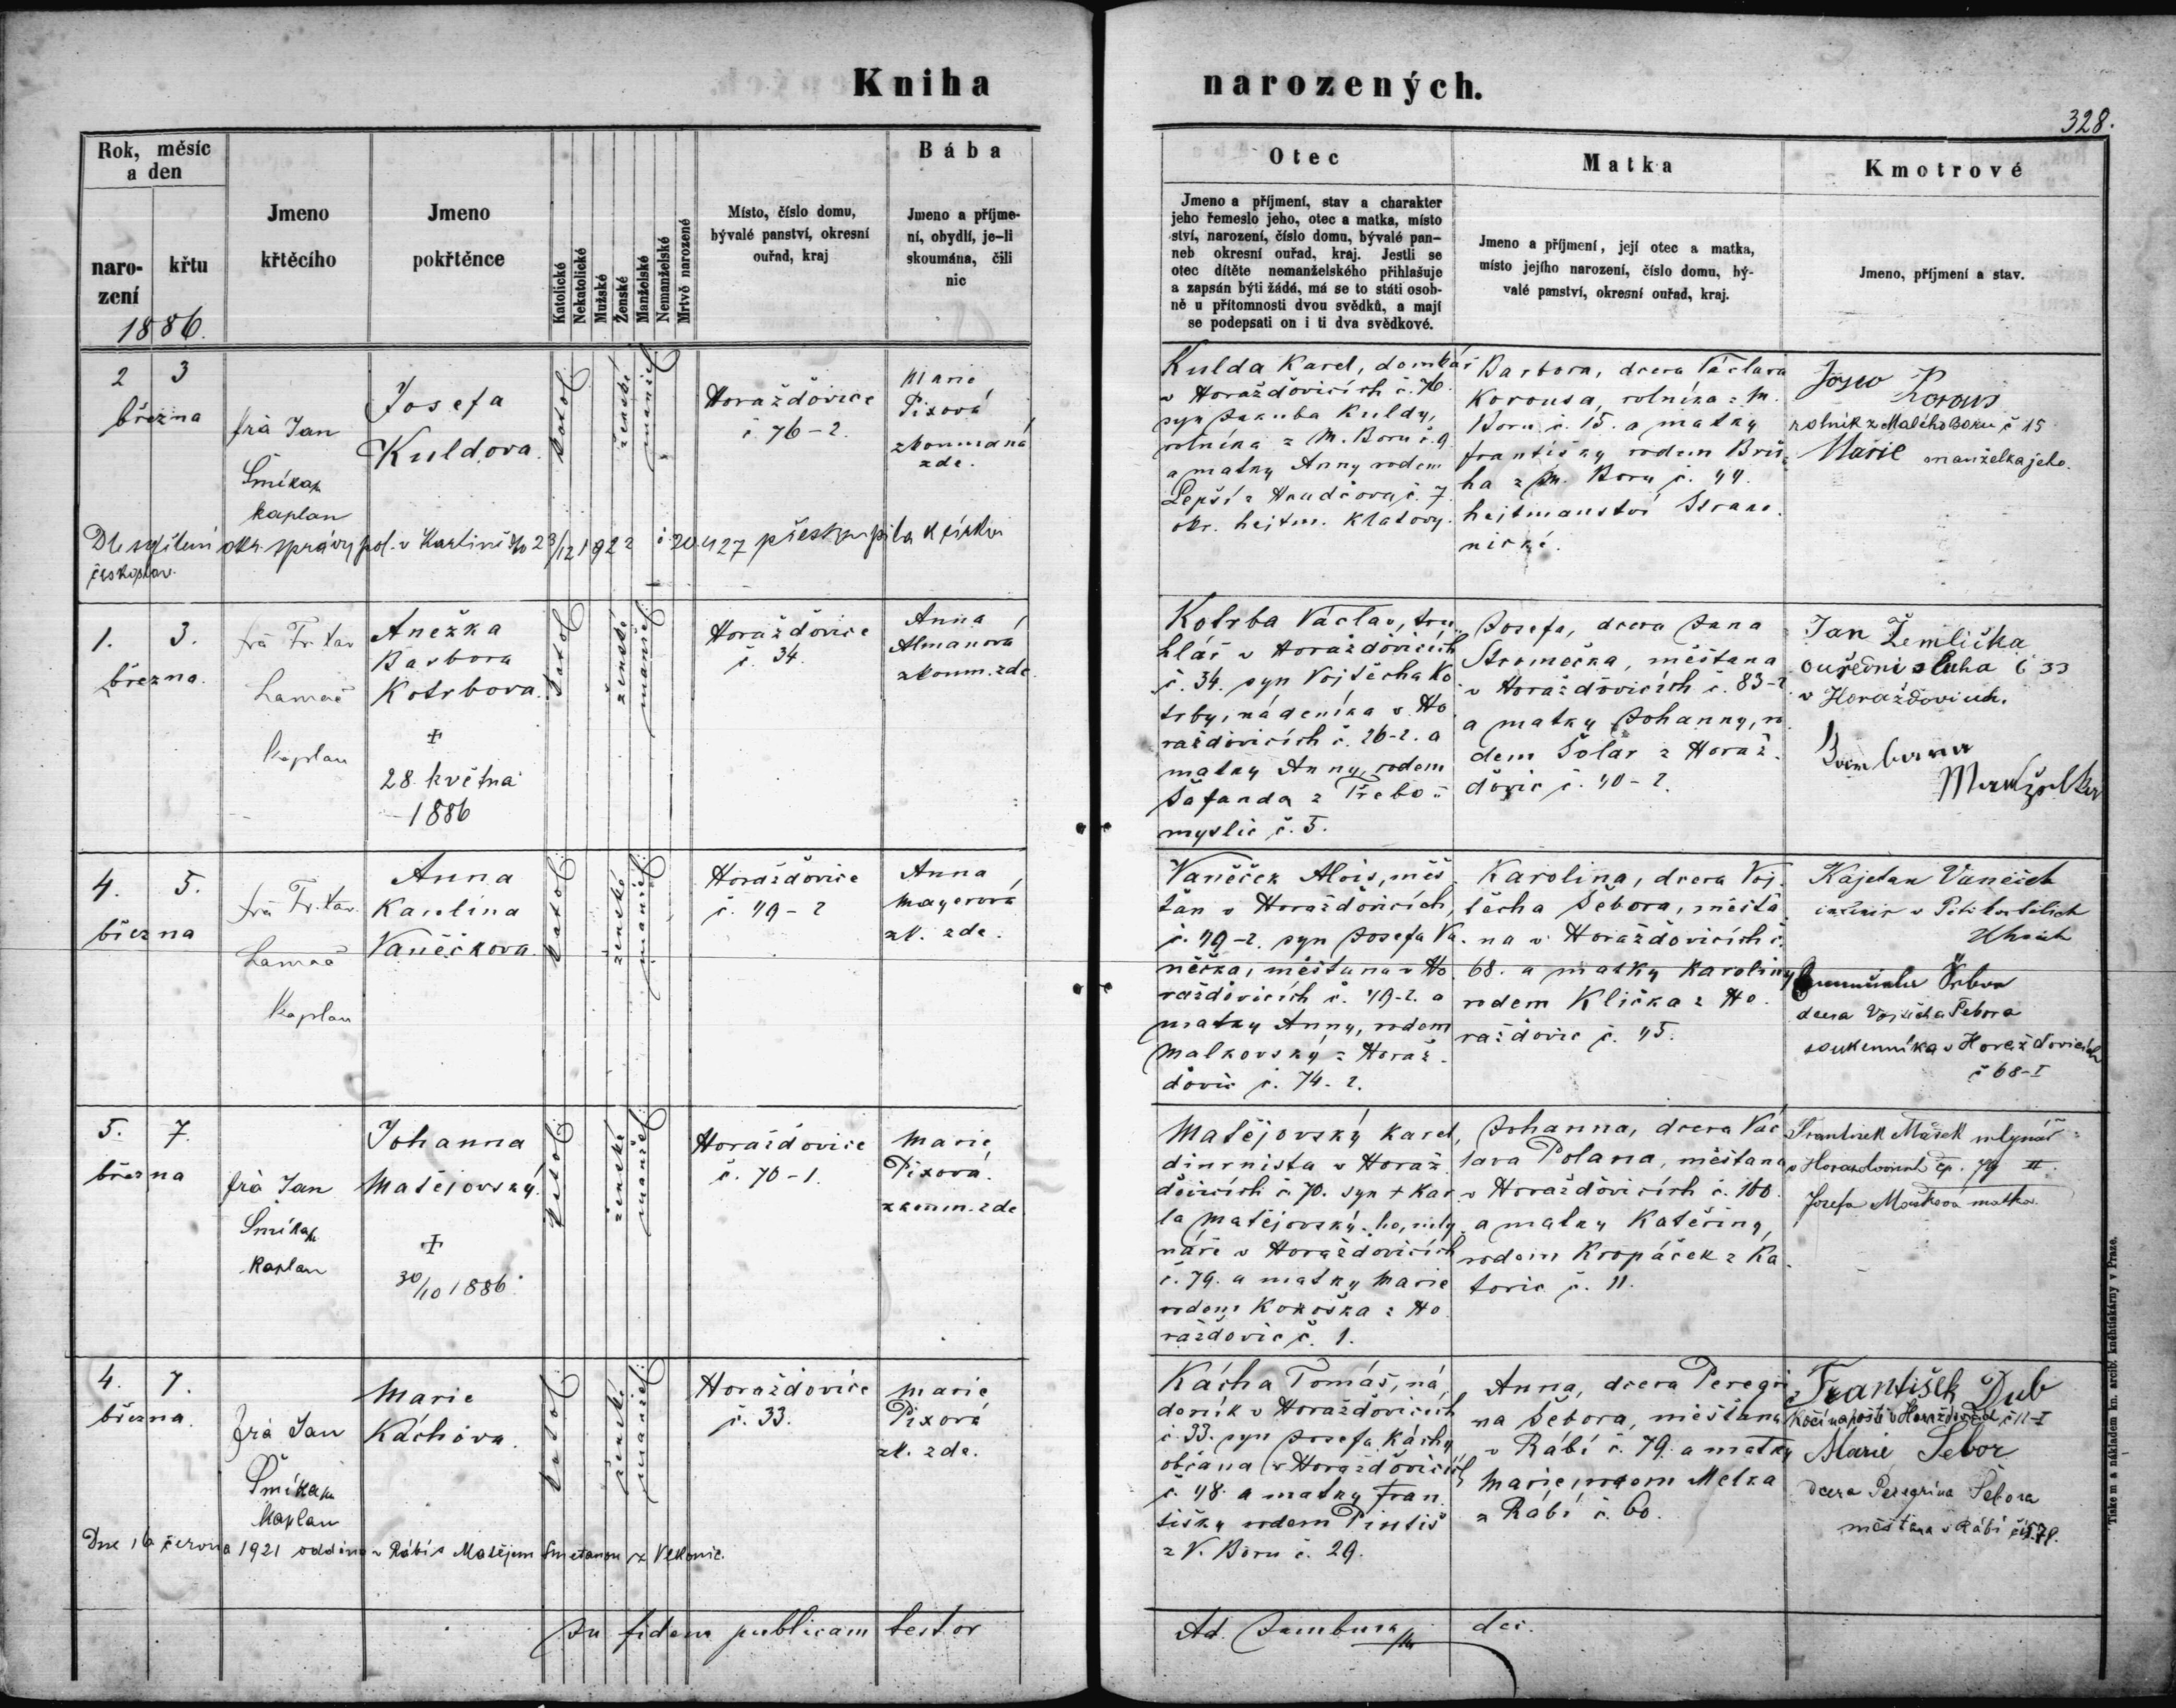 Kniha narozených.
328.
Rok, měsíc
a den
naro-
zení
křtu
1886.
Jmeno
křtěcího
Jmeno
pokřtěnce
Katolické
Nekatolické
Mužské
Ženské
Manželské
Nemanželské
Mrtvě narozené
Místo, číslo domu,
bývalé panství, okresní
ouřad, kraj
Bába
Jmeno a příjme-
ní, obydlí, je-li
skoumána, čili
nic
Otec
Jmeno a příjmení, stav a charakter
jeho řemeslo jeho, otec a matka, místo
ství, narození, číslo domu, bývalé pan-
neb okresní ouřad, kraj. Jestli se
otec dítěte nemanželského přihlašuje
a zapsán býti žádá, má se to státi osob-
ně u přítomnosti dvou svědků, a mají
se podepsati on i ti dva svědkové.
Matka
Jmeno a příjmení, její otec a matka,
místo jejího narození, číslo domu, bý-
valé panství, okresní ouřad, kraj.
Kmotrové
Jmeno, příjmení a stav.
2 3
března
frà Jan
Šmíkal
kaplan
Josefa
Kuldova.
katol
ženské
manžel
Horažďovice
č 76-2.
Marie
Pixová
zkoumaná
zde.
Kulda Karel, domkář
v Horažďovicích č. 76.
syn Jakuba Kuldy,
rolníka z M. Boru č. 9
a matky Anny rodem
Lepší z Hradčova č. 7
okr. hejtm. Klatovy.
Barbora, dcera Václava
Korousa, rolníka z M.
Boru č. 15. a matky
Františky rodem
ha z M. Boru č. 44.
hejtmanství Strako-
nické.
Korous
rolník z Malého Boru č 15
Marie manželka jeho.
Dle sdělení okr. správy pol. v Karlíně z 23/12 1922 č 20.427 přestoupila k církvi
českoslov.
1. 3.
března.
frà Fr. Xav
Lamač
kaplan
Anežka
Barbora
Kotrbova.
+
28. května
1886
katol
ženské
manžel
Horažďovice
č. 34.
Anna
Almanová
zkoum. zde.
Kotrba Václav, tru
hlář v Horažďovicích
č. 34. syn Vojtěcha Ko
trby, nádeníka v Ho
raždovicích č. 26-2. a
matky Anny, rodem
Šafanda z Třebo-
myslic č. 5.
Josefa, dcera Jana
Stromečka, měštana
v Horažďovicích č. 83-2
a matky Johanny, ro
dem Šolar z Horaž
ďovic č. 40-2.
Jan Žemlička
ouřední sluha č 33
v Horažďovicích.
Barbara
Manželka
4. 5.
března
frà Fr. Xav.
Lamač
kaplan
Anna
Karolina
Vaněčkova.
katol
ženské
manžel
Horažďovice
č. 49-2
Anna
Mayerová
zk. zde.
Vaněček Alois, měš
ťan v Horažďovicích,
č. 49-2. syn Josefa Va
něčka, měštana v Ho
raždovicích č. 49-2. a
matky Anny, rodem
Malkovský z Horaž
ďovic č. 74-2.
Karolina, dcera Voj
těcha Šebora, měšťa
na v Horažďovicích č.
68. a matky Karoliny
rodem Klička z Ho
raždovic č. 45.
Kajetan Vaněček
dcera Vojtěcha Šebora
soukenníka v Horažďovicích
č 68-I
5. 7.
března
frà Jan
Šmíkal
kaplan
Johanna
Matějovský.
+
30/10 1886
katol
ženské
manžel
Horažďovice
č. 70-1.
Marie
Pixová.
zkoum. zde
Matějovský Karel,
diurnista v Horaž
ďovicích č. 70. syn + Kar
la Matějovského, mly
náře v Horažďovicích
č. 79. a matky Marie
rodem Kokoška z Ho
raždovic č. 1.
Johanna, dcera Vác
lava Polana, měštana
v Horažďovicích č. 100.
a matky Kateřiny,
rodem Kropáček z Ka
tovic č. 11.
František Mašek mlynář
v Horažďovicích čp. 79 II.
Josefa Mašková matka.
4. 7.
března.
frà Jan
Šmíkal
kaplan
Marie
Káchova.
katol
ženské
manžel
Horažďovice
č. 33.
Marie
Pixová
zk. zde.
Kácha Tomáš, ná
deník v Horažďovicích
č. 33. syn Josefa Káchy,
občana v Horažďovicích
č. 48. a matky Fran
tišky rodem Pintíš
z V. Boru č. 29.
Anna, dcera Peregri
na Šebora, měštana
v Rábí č. 79. a matky
Marie, rodem Melka
z Rábí č. 60.
František Dub
Kočí na poště v Horažďovicích č 11-I
Marie Šebor
dcera Peregrina Šebora
měštana v Rábí čís. 79.
Dne 16 června 1921 oddána v Rábí s Matějem Smetanou z Vlkonic.
In fidem publicam testor
Ad. Jambura
dec.
Tiskem a nákladem kn. arcib. knihtiskárny v Praze.